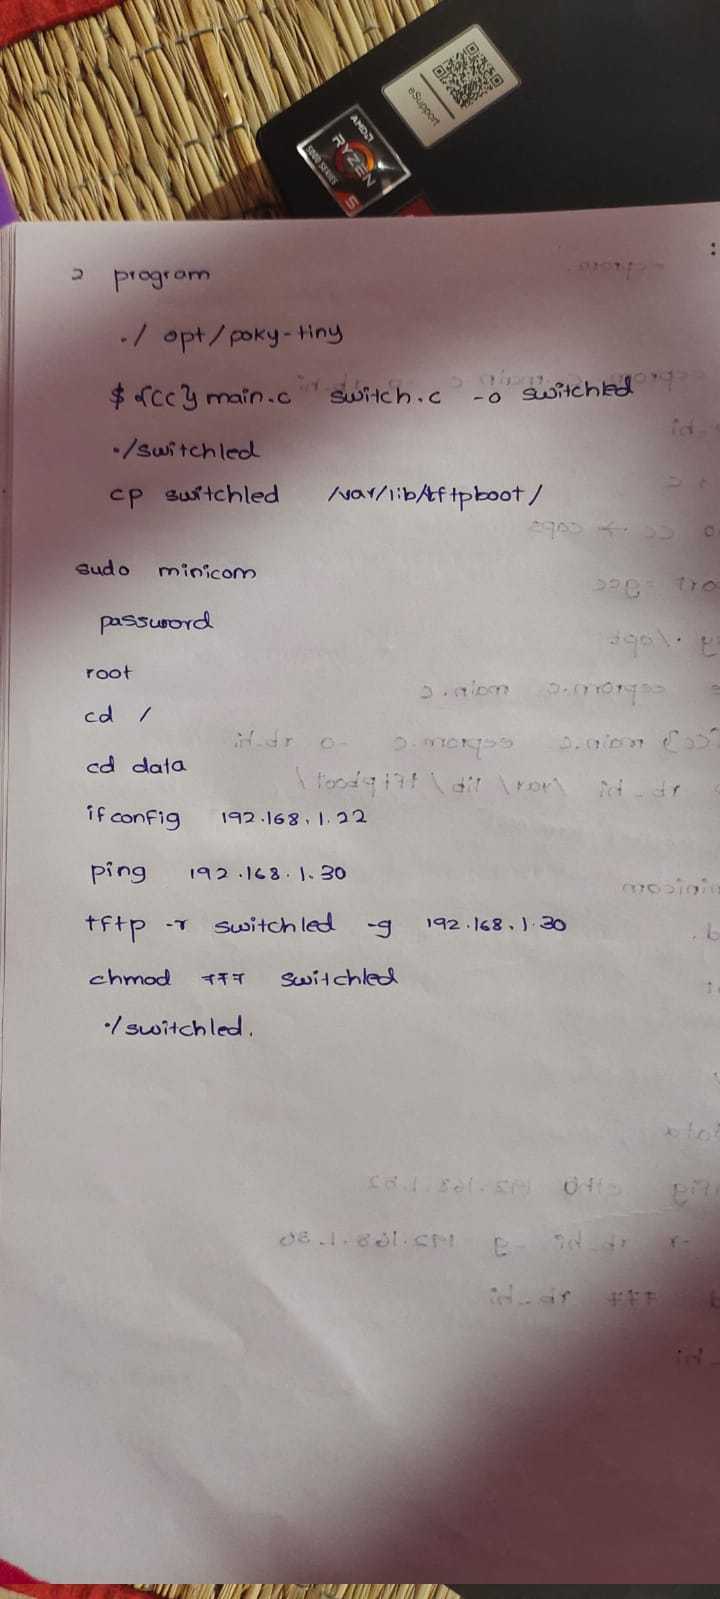 eSupport
AMD
RYZEN
5000 SERIES
5
2 program
./ opt/poky-tiny
$ {CC} main.c switch.c -o switchled
./switchled
cp switchled /var/lib/tftpboot/
sudo minicom
password
root
cd /
cd data
ifconfig 192.168.1.22
ping 192.168.1.30
tftp -r switchled -g 192.168.1.30
chmod 777 switchled
./switchled.